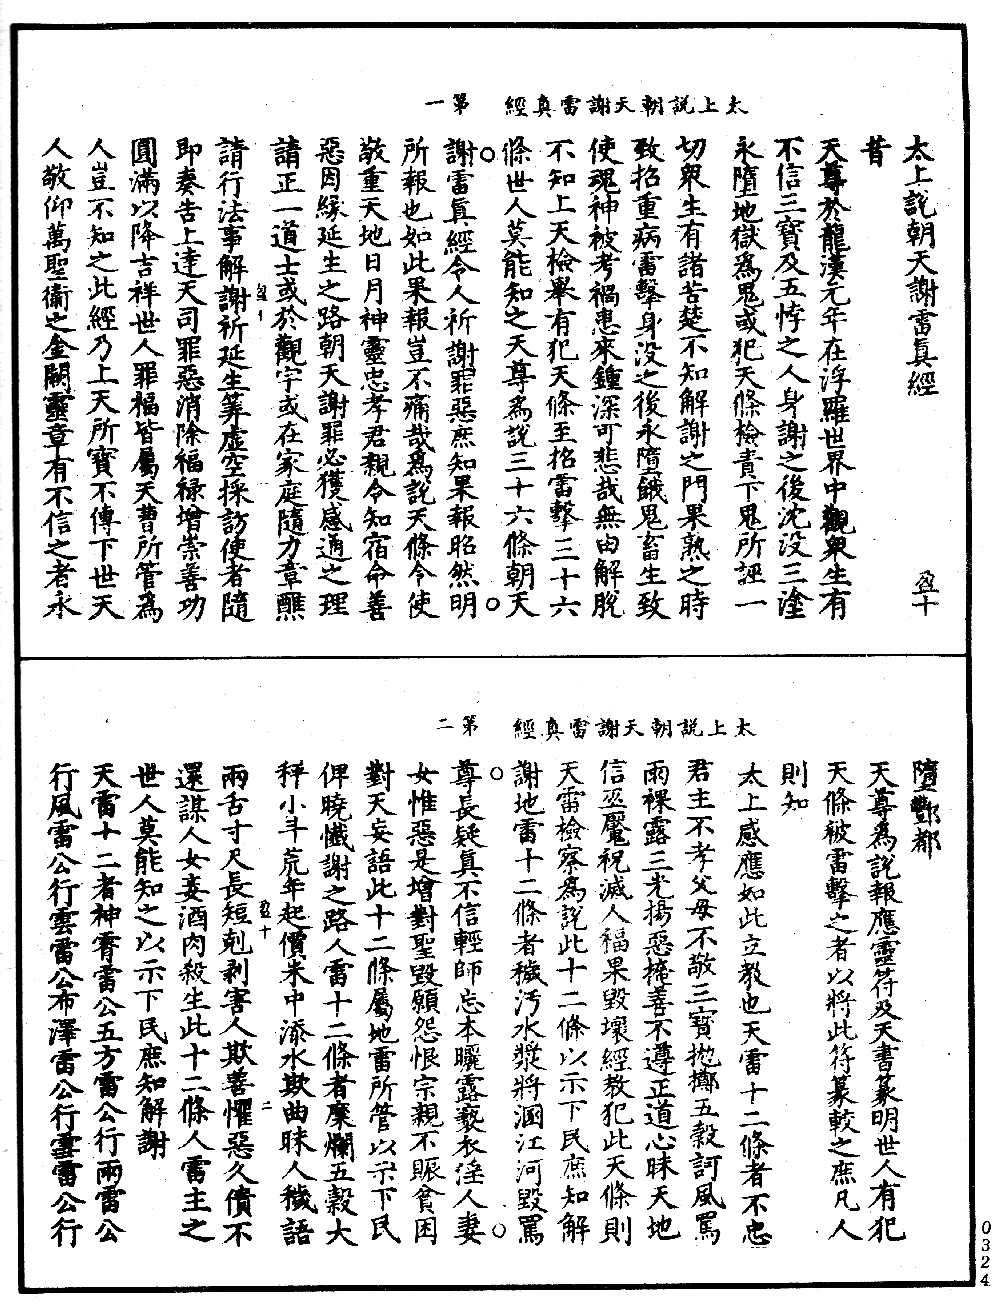 太上說朝天謝雷真經　第一
太上說朝天謝雷眞經　盈十
昔
天尊於龍漢元年在浮羅世界中觀衆生有
不信三寶及五悖之人身謝之後沈没三塗
永墮地獄爲鬼或犯天條檢責下鬼所誣一
切衆生有諸苦楚不知解謝之門果熟之時
致招重病雷擊身没之後永墮餓鬼畜生致
使魂神被考禍患來鍾深可悲哉無由解脫
不知上天檢舉有犯天條至招雷擊三十六
條世人莫能知之天尊爲說三十六條朝天
謝雷眞經令人祈謝罪惡庶知果報昭然明
所報也如此果報豈不痛哉爲說天條令使
敬重天地日月神靈忠孝君親令知宿命善
惡因緣延生之路朝天謝罪必獲感通之理
請正一道士或於觀宇或在家庭隨力章醮
請行法事解謝祈延生筭虛空採訪使者隨
即奏告上達天司罪惡消除福禄增崇善功
圓滿以降吉祥世人罪福皆屬天曹所管爲
人豈不知之此經乃上天所寶不傳下世天
人敬仰萬聖衞之金闕靈章有不信之者永
太上說朝天謝雷真經　第二
墮酆都
天尊爲說報應靈符及天書篆明世人有犯
天條被雷擊之者以將此符篆較之庶凡人
則知
太上感應如此立教也天雷十二條者不忠
君主不孝父母不敬三寶抛擲五穀訶風罵
雨裸露三光揚惡掩善不遵正道心昧天地
信巫魘祝滅人福果毀壞經教犯此天條則
天雷檢察爲說此十二條以示下民庶知解
謝地雷十二條者穢汚水漿將溷江河毀罵
尊長疑真不信輕師忘本曬露褻衣淫人妻
女惟惡是增對聖毀願怨恨宗親不賑貧困
對天妄語此十二條屬地雷所管以示下民
俾曉懺謝之路人雷十二條者糜爛五穀大
秤小斗荒年起價米中添水欺曲昧人穢語
兩舌寸尺長短剋剥害人欺善懼惡久債不
還謀人女妾酒肉殺生此十二條人雷主之
世人莫能知之以示下民庶知解謝
天雷十二者神霄雷公五方雷公行雨雷公
行風雷公行雲雷公布澤雷公行雪雷公行
盈十　二
0324